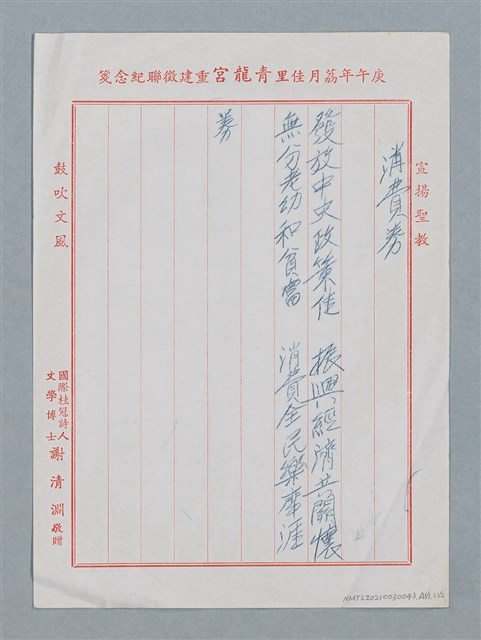 庚午年荔月佳里青龍宮重建徵聯紀念箋
宣揚聖教
消費券
發放中央政策佳 振興經濟共關懷
無分老幼和貧富 消費全民樂庠涯
券
鼓吹文風
國際桂冠詩人
文學博士
謝清淵敬贈